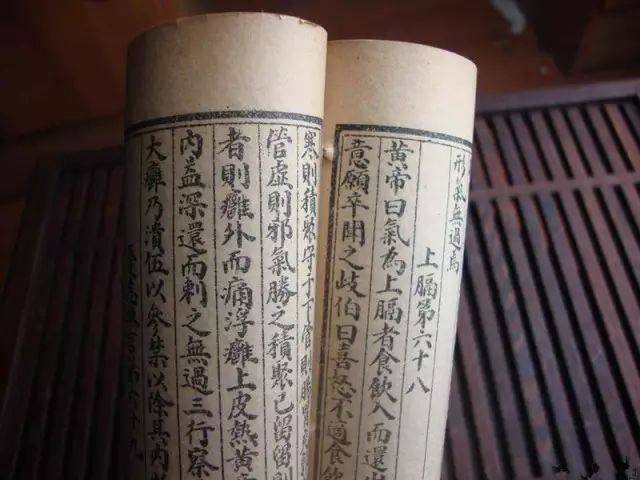 形氣無過焉
上膈第六十八
黃帝曰氣為上膈者食飲入而還
意願卒聞之歧伯曰喜怒不適食飲
寒則積聚守于下管則腸
管虛則邪氣勝之積聚已留留則
者則癰外而痛浮癰上皮熱黃帝
內益深還而刺之無過三行察
大癰乃潰伍以參禁以除其內
憂恚無言第六十九